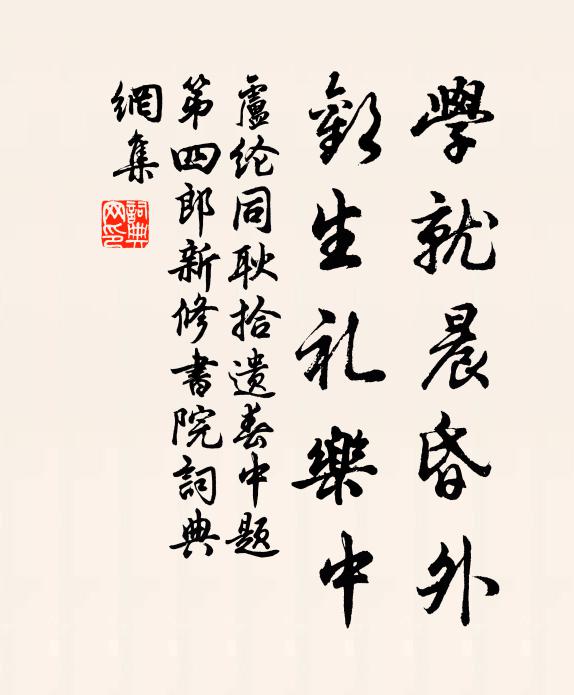 學就晨昏外
歡生礼樂中
盧纶同耿拾遺春中題
第四郎新修書院詞典
網集
詞典
网印